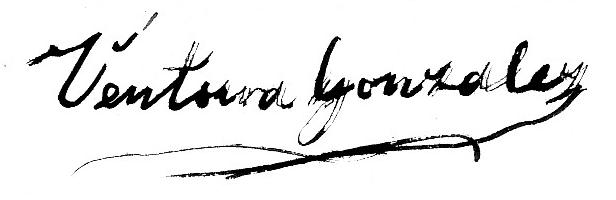 Ventura Gonzalez